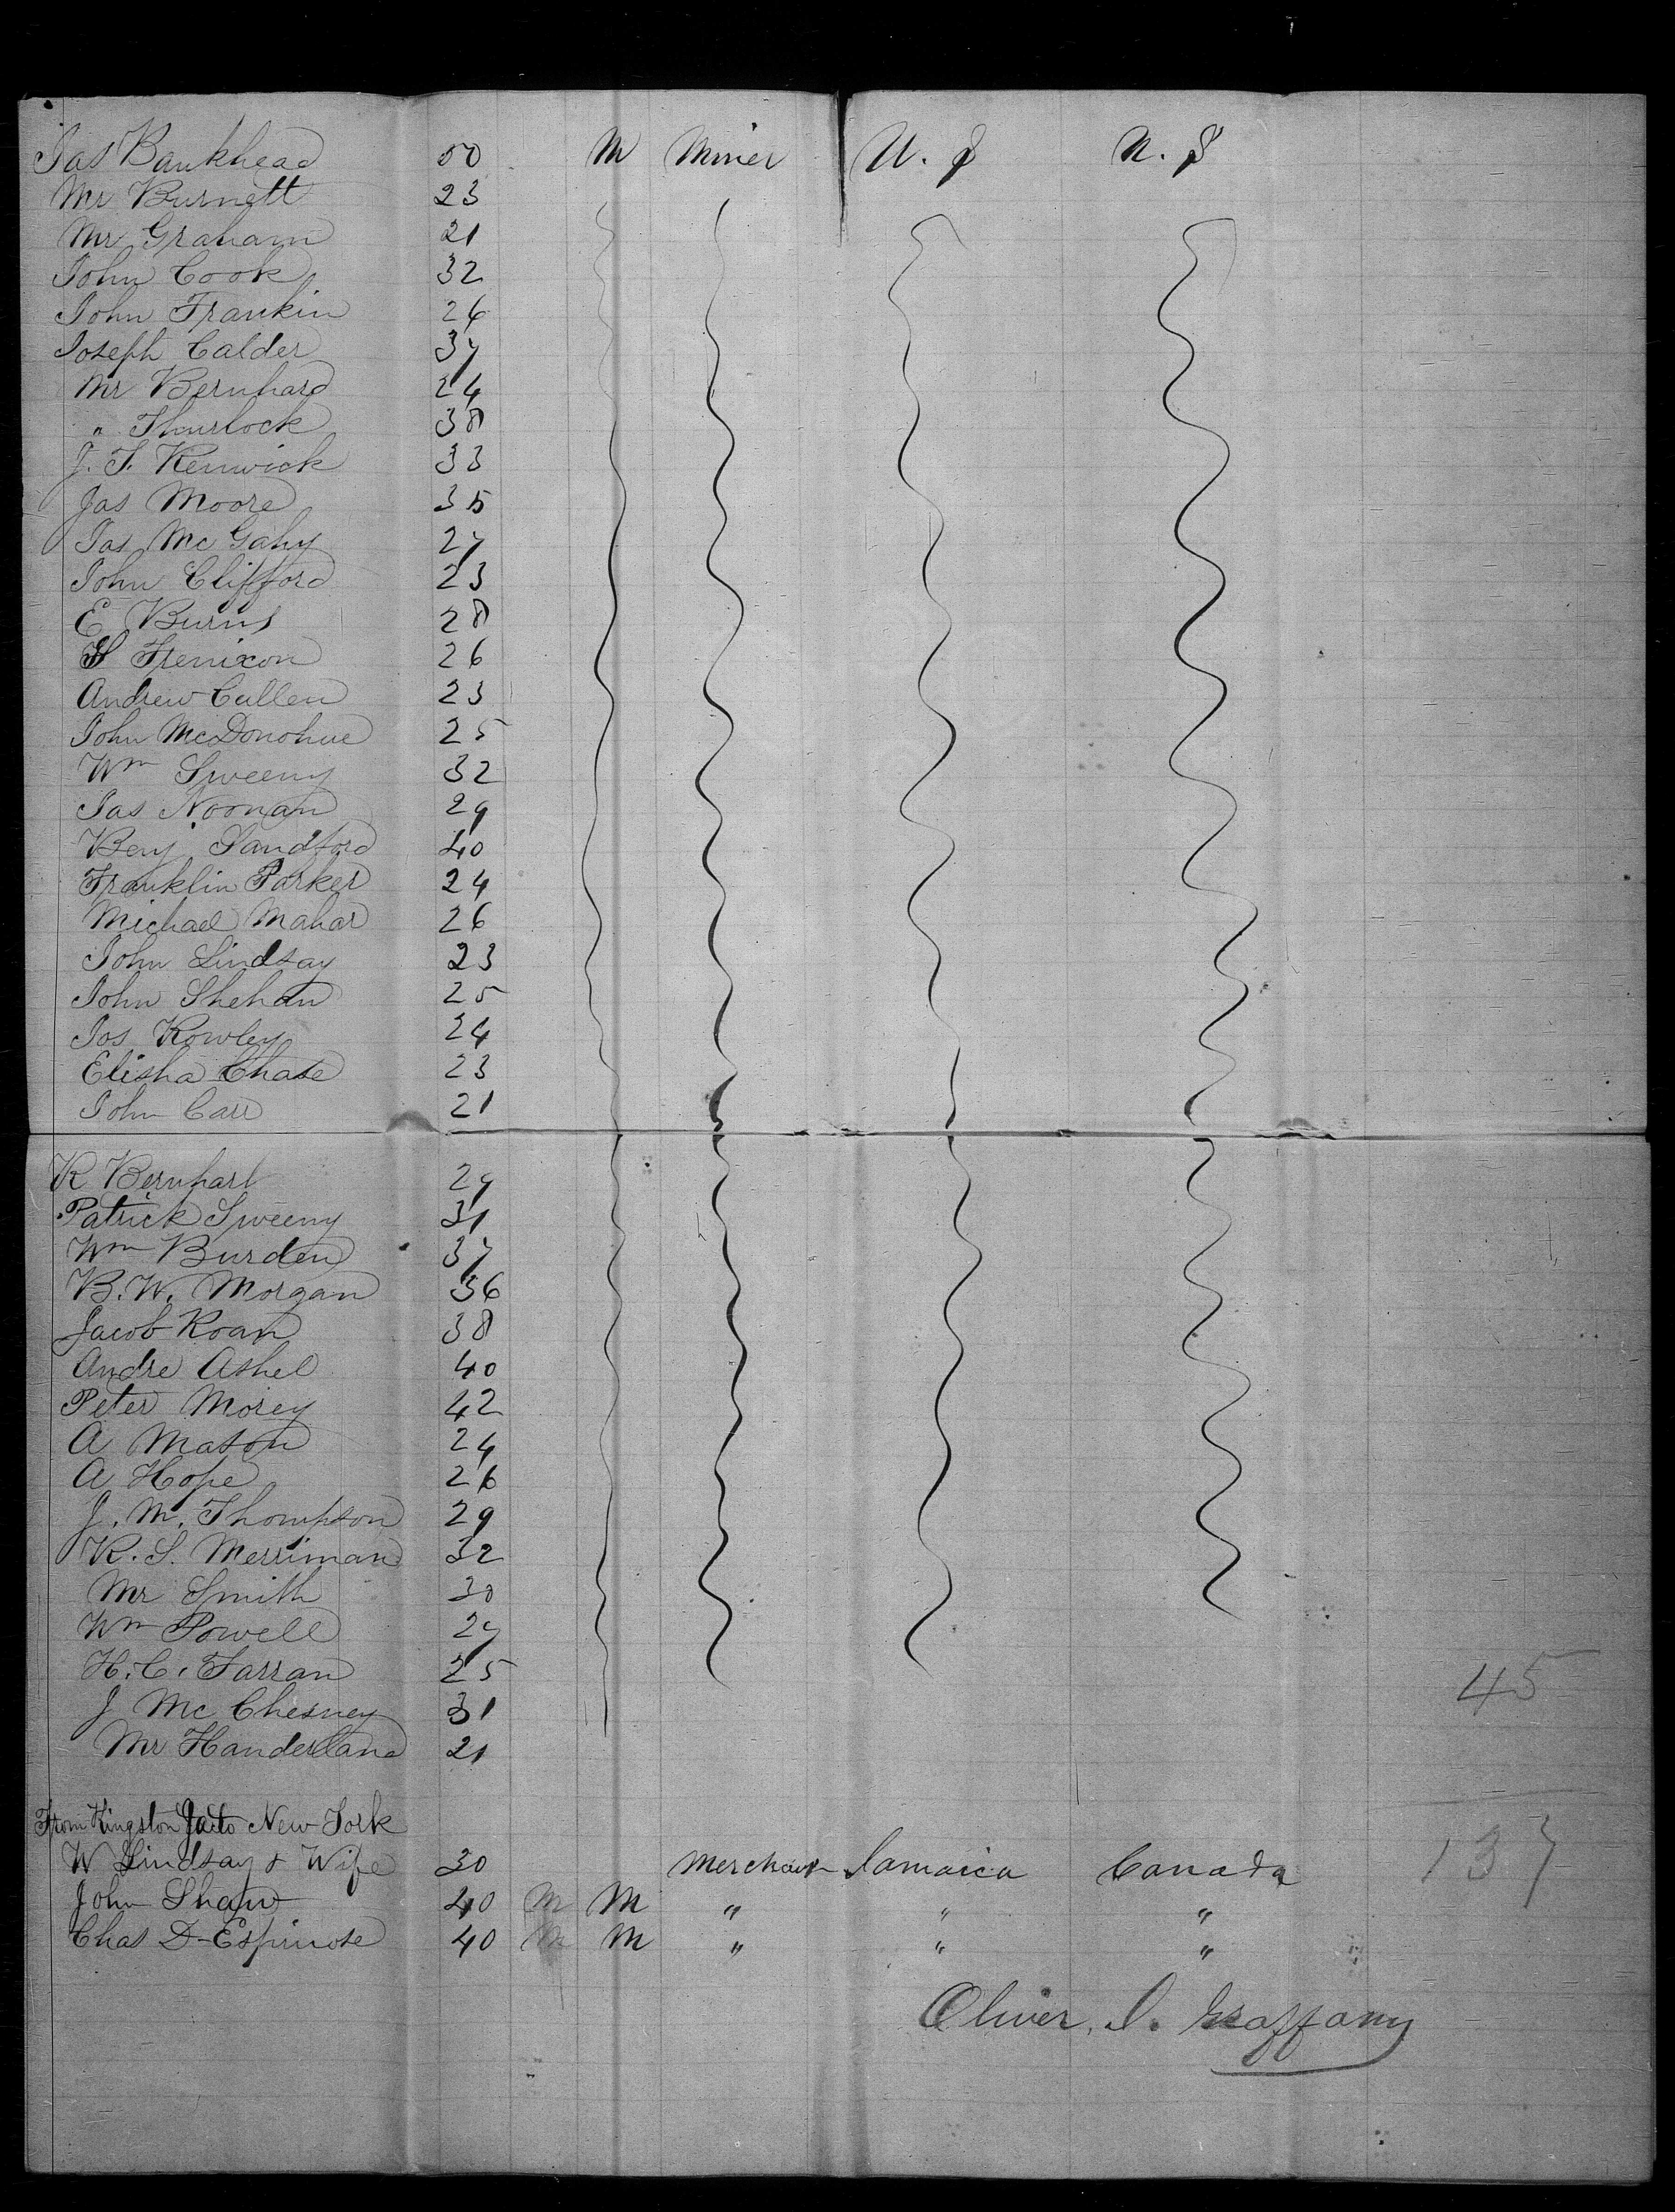 Jas Bankhead 50 M Miner U. S U. S
Mr Burnett 23
Mr Graham 21
John Cook 32
John Frankin 26
Joseph Calder 37
Mr Bernhard 24
" Thurlock 38
J. T. Renwick 33
Jas Moore 35
Jas Mc Gahy 27
John Clifford 23
E Burns 28
Frenixon 26
Andrew Cullen 23
John McDonohue 25
Wm Sweeny 32
Jas Noonan 29
Benj Sandford 40
Franklin Parker 24
Michael Mahar 26
John Lindsay 23
John Shehan 25
Jos Rowley 24
Elisha Chase 23
John Carr 21
R Bernhart 29
Patrick Sweeny 31
Wm Burden 37
B. W. Morgan 36
Jacob Roan 38
Andre Ashel 40
Peter Morey 42
A Mason 24
A Hope 26
J. M. Thompson 29
R. S. Merriman 32
Mr Smith 30
Wm Powell 27
H. C. Farran 25
45
J Mc Chesney 31
Mr Handerland 21
From Kingston Ja to New York
W Lindsay & Wife 30 Merchant Jamaica Canada
137
John Shaw 40 M M " " "
Chas D-Espinose 40 M M " " "
Oliver